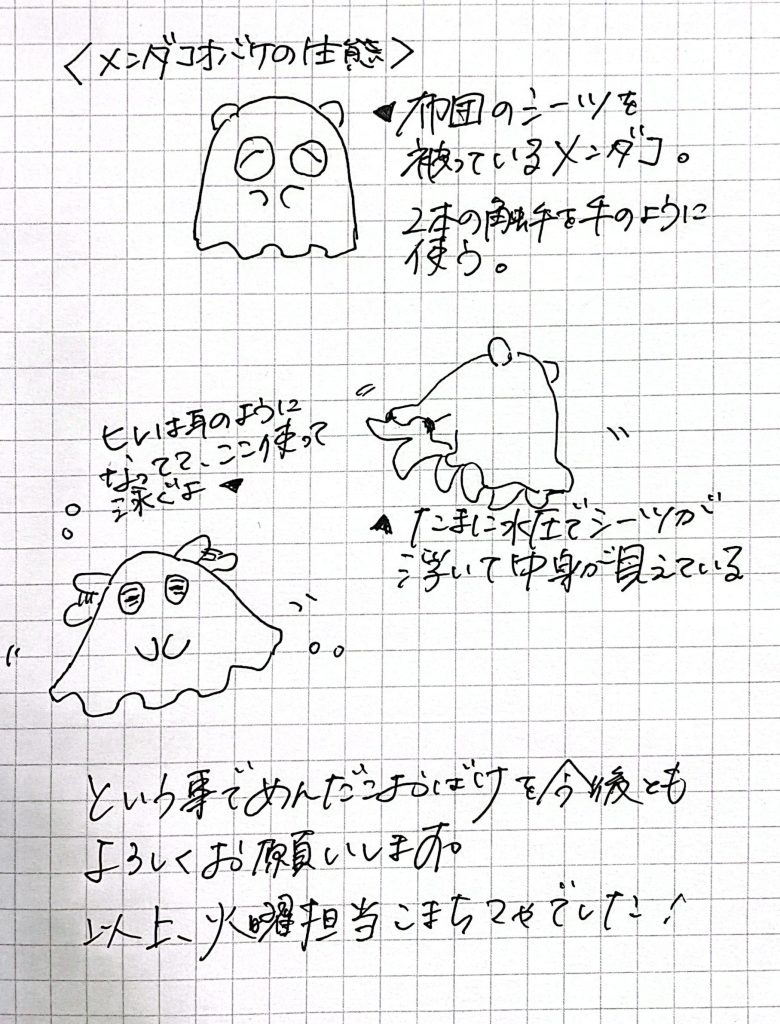 〈メンダコオバケの生態〉
◀布団のシーツを
被っているメンダコ。
2本の触手を手のように
使う。
ヒレは耳のように
なってて、ここ使って
泳ぐよ◀
▲たまに水圧でシーツが
浮いて中身が見えている
という事でめんだこおばけを今後とも
よろしくお願いします。
以上、火曜担当こまちてゃでした!